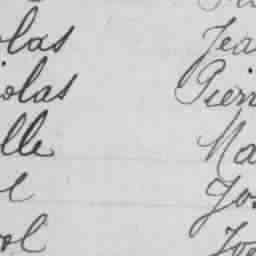 olas Jea
olas Pier
lle Ma
l Jos
ol Jos